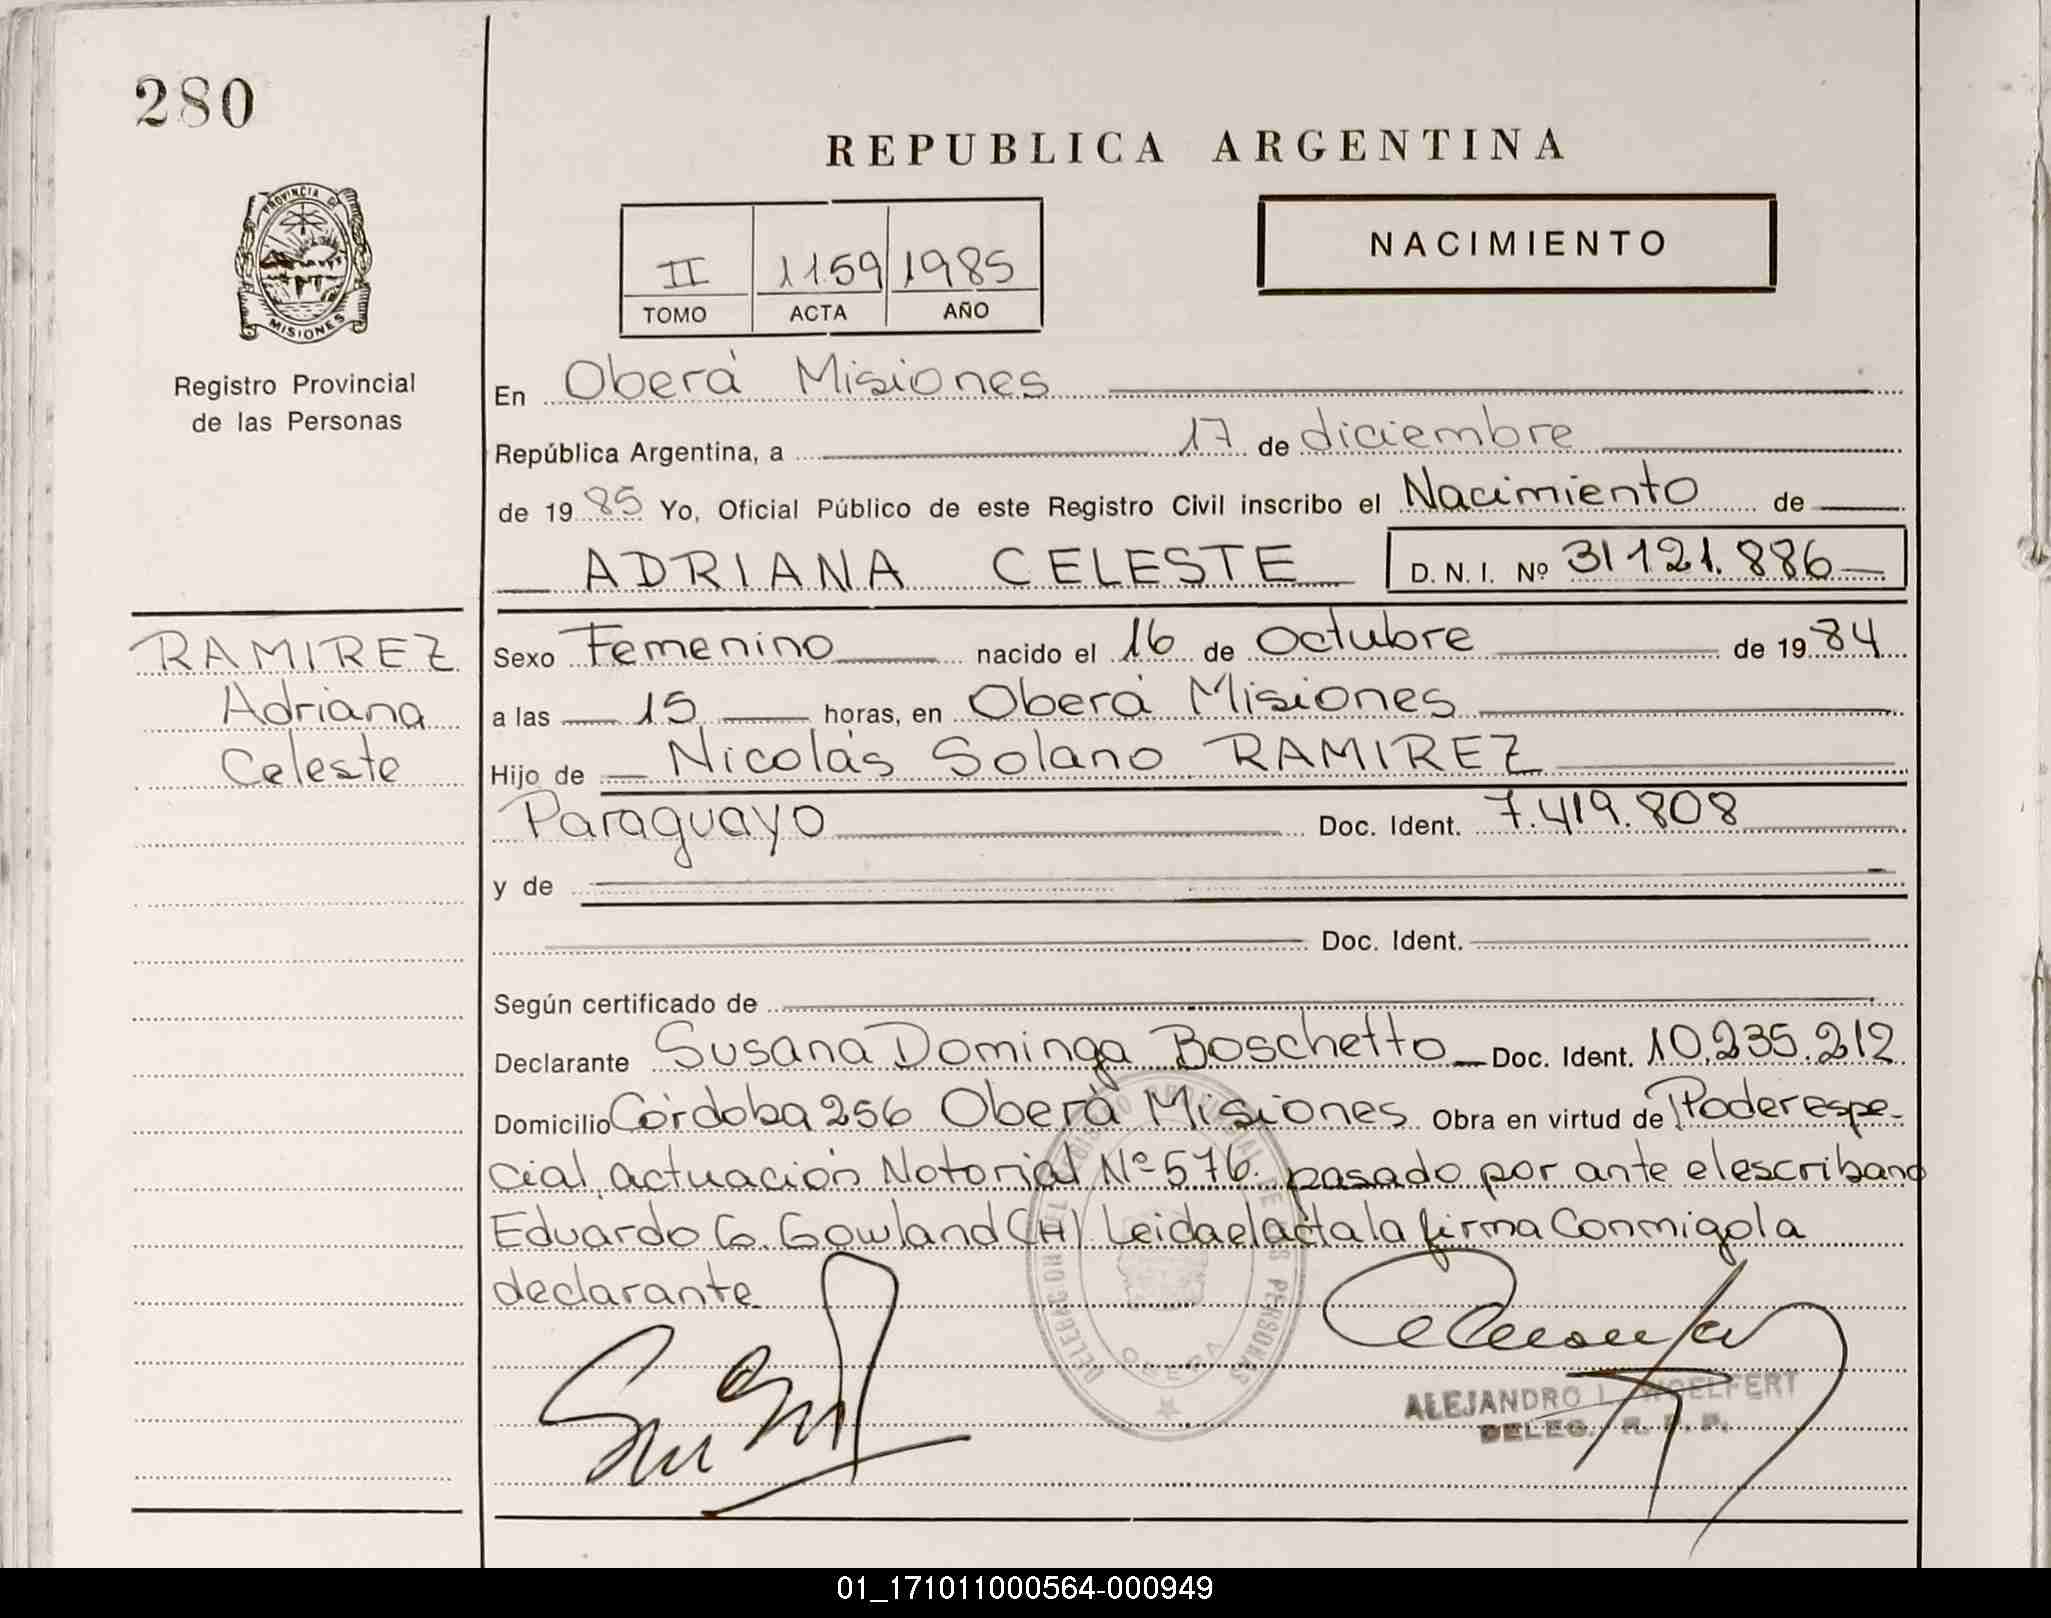 280
REPUBLICA ARGENTINA
PROVINCIA DE
MISIONES
II 1159 1985
TOMO ACTA AÑO
NACIMIENTO
Registro Provincial
de las Personas
En Oberá Misiones
República Argentina, a 17 de diciembre
de 1985 Yo, Oficial Público de este Registro Civil inscribo el Nacimiento de
ADRIANA CELESTE D. N. I. Nº 31121.886
RAMIREZ
Adriana
Celeste
Sexo Femenino nacido el 16 de Octubre de 1984
a las 15 horas, en Oberá Misiones
Hijo de Nicolás Solano RAMIREZ
Paraguayo Doc. Ident. 7.419.808
y de
Doc. Ident.
Según certificado de
Declarante Susana Dominga Boschetto Doc. Ident. 10.235.212
Domicilio Córdoba 256 Oberá Misiones Obra en virtud de Poder espe-
cial, actuación Notorial Nº 576. pasado por ante el escribano
Eduardo G. Gowland (H) Leida el acta la firma Conmigo la
declarante
DELEGACION DEL REGISTRO PROVINCIAL DE LAS PERSONAS
OBERA
ALEJANDRO L. WOELFERT
DELEG. R. P. P.
01_171011000564-000949